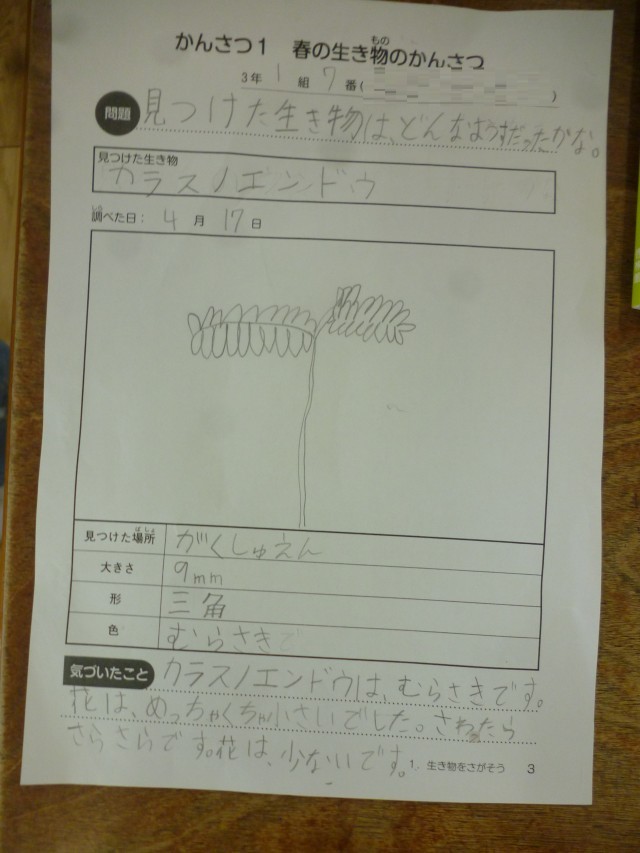 かんさつ1 春の生き物のかんさつ
もの
3年 1 組 7 番( )
問題 見つけた生き物は、どんなようすだったかな。
見つけた生き物
カラスノエンドウ
調べた日: 4 月 17 日
見つけた場所 がくしゅえん
ばしょ
大きさ 9mm
形 三角
色 むらさき
気づいたこと カラスノエンドウは、むらさきです。
花は、めっちゃくちゃ小さいでした。さわったら
さらさらです。花は、少ないです。
1. 生き物をさがそう 3